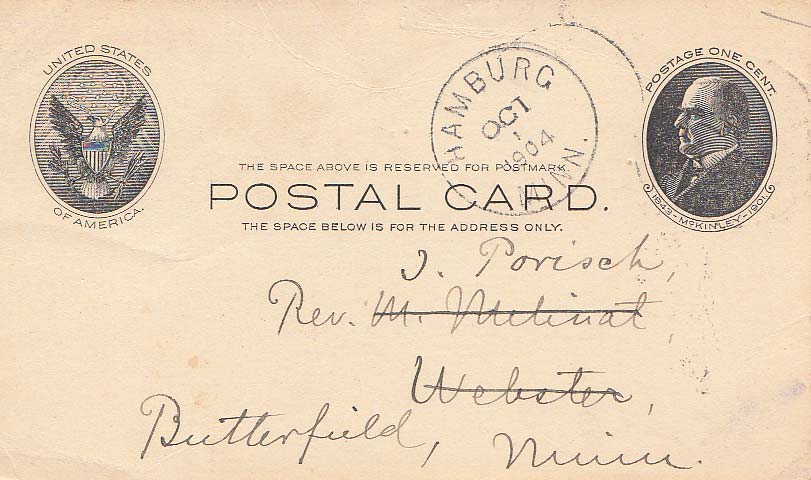 UNITED STATES
OF AMERICA.
HAMBURG
OCT
1
1904
MINN.
POSTAGE ONE CENT.
1843-MCKINLEY-1901
THE SPACE ABOVE IS RESERVED FOR POSTMARK.
POSTAL CARD.
THE SPACE BELOW IS FOR THE ADDRESS ONLY.
J. Porisch,
Rev. M. Melinat,
Webster,
Butterfield, Minn.